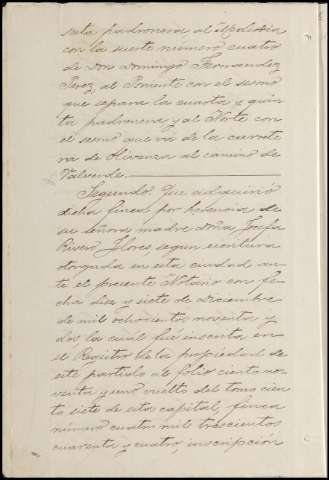 sexta padronera al Mediodia
con la suerte número cuatro
de Don Domingo Fernandez
Perez al Poniente con el sesmo
que separa la cuarta y quin
ta padronera y al Norte con
el sesmo que vá de la carrete
ra de Olivenza al camino de
Valverde.
Segundo: Que adquirió
dicha finca por herencia de
su señora madre doña Josefa
Rivero Flores, segun escritura
otorgada en esta ciudad an
te el presente Notario con fe
cha diez y siete de Diciembre
de mil ochocientos noventa y
dos la cual fué inscrita en
el Registro de la propiedad de
este partido al folio ciento no
venta y uno vuelto del tomo cien
to siete de esta capital, finca
número cuatro mil trescientos
cuarenta y cuatro, inscripción